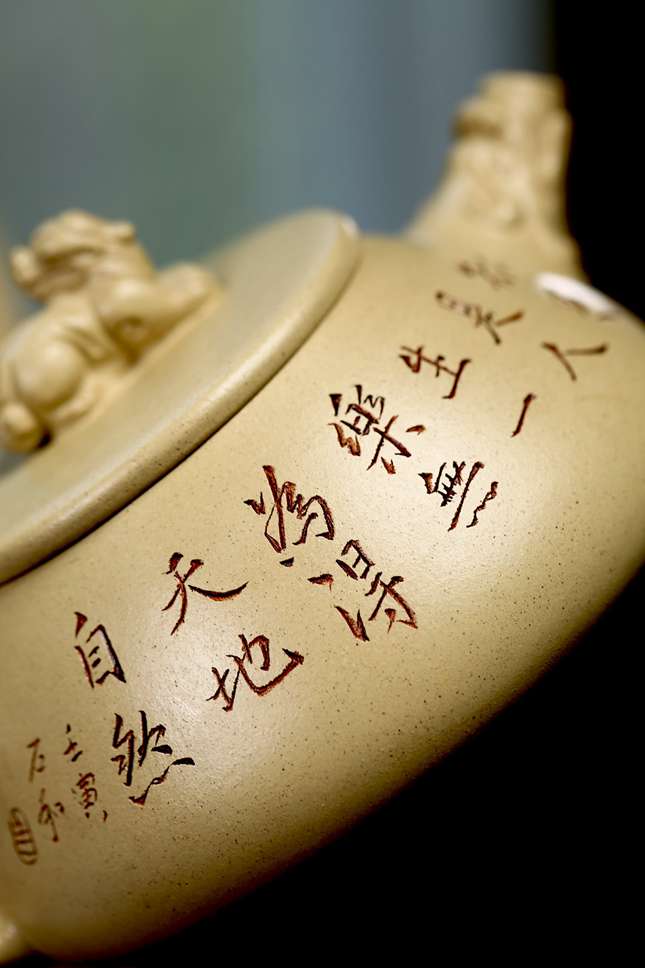 知
足人
生一
樂無
為得
天地
自然
壬寅
石和